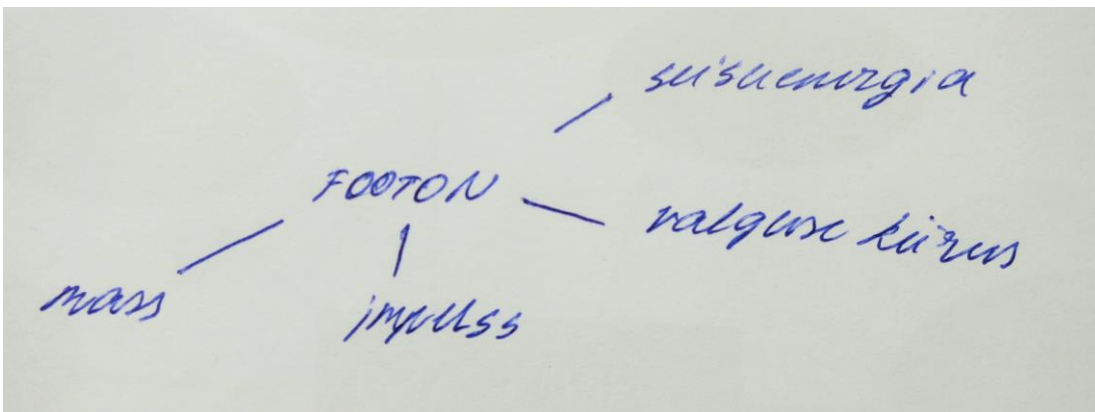 seisuenergia
FOOTON
valguse kiirus
mass
impulss